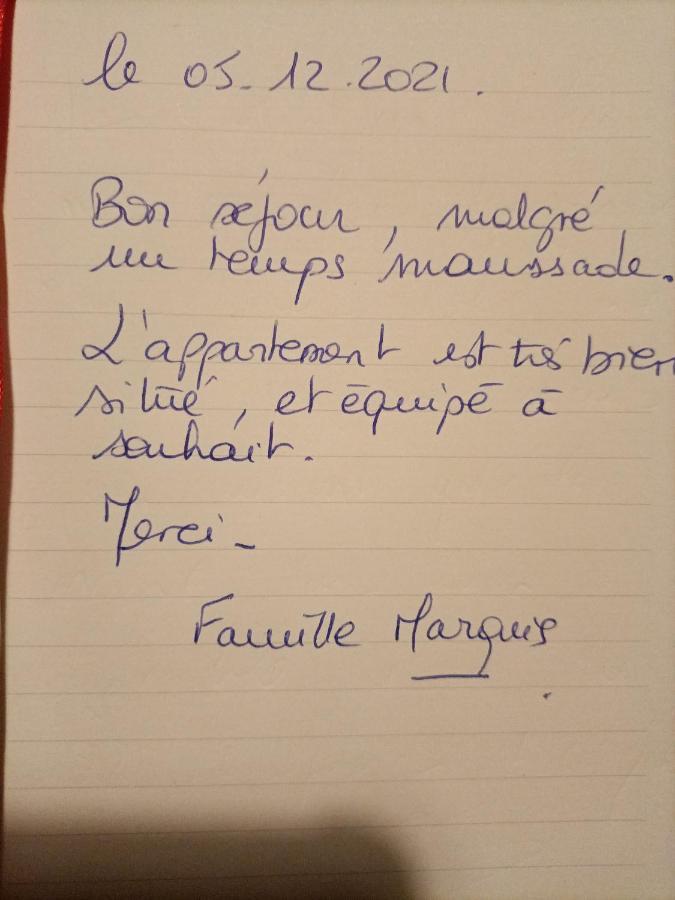 le 05.12.2021.
Bon séjour, malgré
un temps maussade.
L'appartement est très bien
situé, et équipé à
souhait.
Merci -
Famille Marquis